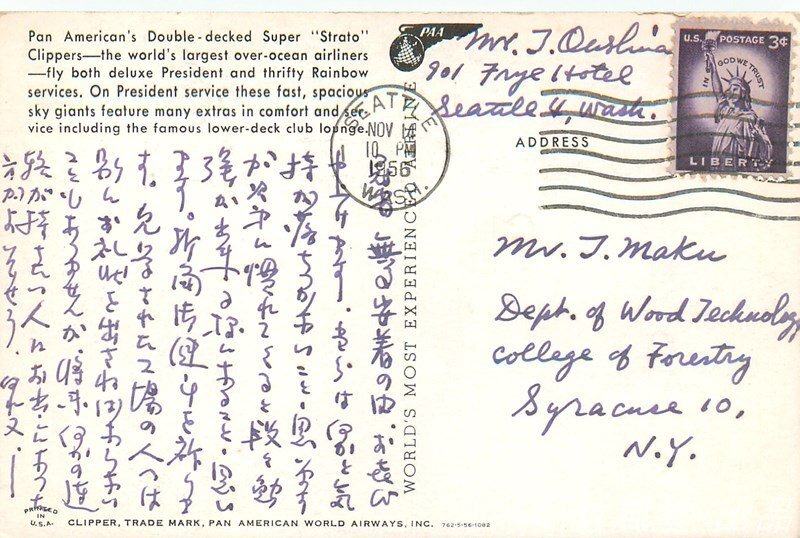 Pan American's Double-decked Super "Strato"
Clippers—the world's largest over-ocean airliners
—fly both deluxe President and thrifty Rainbow
services. On President service these fast, spacious
sky giants feature many extras in comfort and service
including the famous lower-deck club lounge.
PAA
Mr. T.
901 Frye Hotel
Seattle 4, Wash.
U.S. POSTAGE 3¢
IN GOD WE TRUST
LIBERTY
SEATTLE
NOV
10 PM
1956
WASH.
ADDRESS
無事安着の由、お喜び
申し上げます。当分は何かと気
持が落ちつかないことと思います
が次第に慣れてくると段々勉
強が出来る様になることと思い
ます。折角御健斗を祈りま
す。見学された工場の人へは
別にお礼状を出さねばならない
こともありませんが、将来何かの連
絡が持ちたい人にはお出しになった
方がよいでせう。何れ又.—
WORLD'S MOST EXPERIENCED AIRLINE
Mr. T. Maku
Dept. of Wood Technology
College of Forestry
Syracuse 10,
N.Y.
PRINTED
IN
U.S.A.
CLIPPER, TRADE MARK, PAN AMERICAN WORLD AIRWAYS, INC. 762-5-56-1082